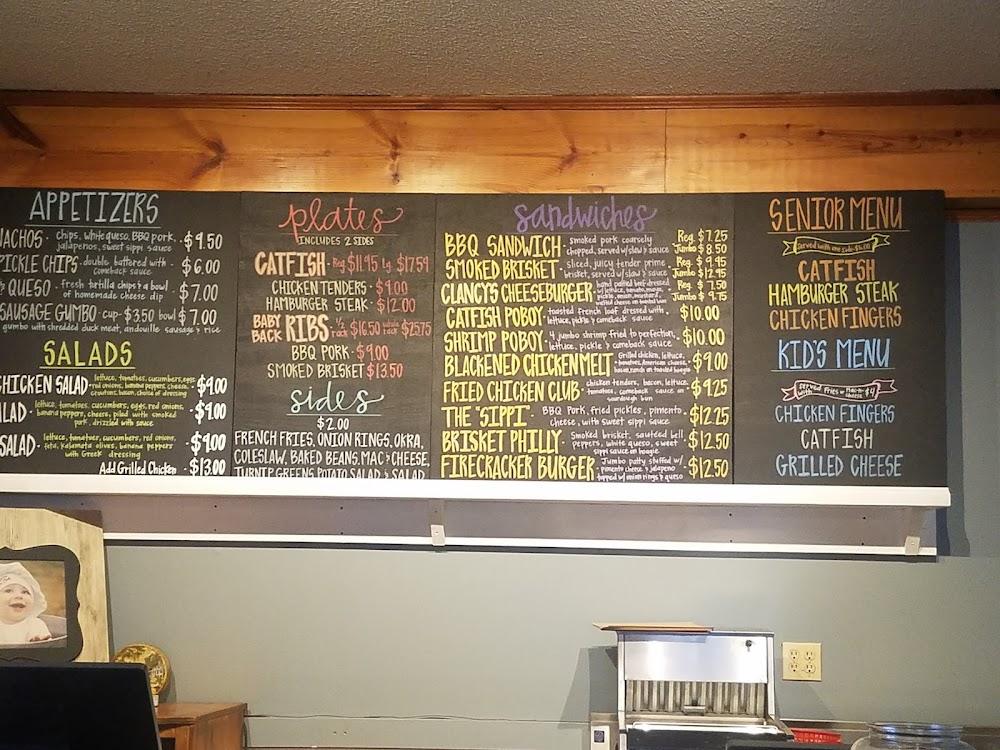 APPETIZERS
NACHOS - chips, white queso, BBQ pork, jalapenos, sweet sippi sauce - $9.50
PICKLE CHIPS - double battered with comeback sauce - $6.00
QUESO - fresh tortilla chips & a bowl of homemade cheese dip - $7.00
SAUSAGE GUMBO - cup - $3.50 bowl $7.00
gumbo with shredded duck meat, andouille sausage & rice
SALADS
CHICKEN SALAD - lettuce, tomatoes, cucumbers, eggs, red onions, banana peppers, cheese, croutons, bacon, choice of dressing - $9.00
ALAD - lettuce, tomatoes, cucumbers, eggs, red onions, banana peppers, cheese, piled with smoked pork, drizzled with sauce - $9.00
SALAD - lettuce, tomatoes, cucumbers, red onions, feta, kalamata olives, banana peppers with Greek dressing - $9.00
Add Grilled Chicken - $13.00
plates
INCLUDES 2 SIDES
CATFISH - Reg $11.95 Lg $17.59
CHICKEN TENDERS - $9.00
HAMBURGER STEAK - $12.00
BABY BACK RIBS 1/2 rack $16.50 $25.75
BBQ PORK - $9.00
SMOKED BRISKET $13.50
sides
$2.00
FRENCH FRIES, ONION RINGS, OKRA,
COLESLAW, BAKED BEANS, MAC & CHEESE,
TURNIP GREENS, POTATO SALAD & SALAD
sandwiches
BBQ SANDWICH - smoked pork coarsely chopped, served w/ slaw & sauce Reg. $7.25 Jumbo $8.50
SMOKED BRISKET - sliced, juicy tender prime brisket, served w/ slaw & sauce Reg $9.95 Jumbo $12.95
CLANCY'S CHEESEBURGER - hand patted beef dressed w/ lettuce, tomato, mayo, pickle, onion, mustard, melted cheese on toasted bun Reg $7.50 Jumbo $9.75
CATFISH POBOY - toasted french loaf dressed with lettuce, pickle & comeback sauce - $10.00
SHRIMP POBOY - 4 jumbo shrimp fried to perfection, lettuce, pickle & comeback sauce - $10.00
BLACKENED CHICKEN MELT - Grilled chicken, lettuce, tomatoes, American cheese, bacon, ranch on toasted hoagie - $9.00
FRIED CHICKEN CLUB - chicken tenders, bacon, lettuce, tomatoes, comeback sauce on sourdough bun - $9.25
THE "SIPPI" - BBQ Pork, fried pickles, pimento cheese, with sweet sippi sauce - $12.25
BRISKET PHILLY - Smoked brisket, sautéed bell peppers, white queso, sweet sippi sauce on hoagie - $12.50
FIRECRACKER BURGER - Jumbo patty stuffed w/ pimento cheese & jalapeno topped w/ onion rings & queso - $12.50
SENIOR MENU
Served with one side
CATFISH
HAMBURGER STEAK
CHICKEN FINGERS
KID'S MENU
served with fries or Mac-n-cheese $4
CHICKEN FINGERS
CATFISH
GRILLED CHEESE